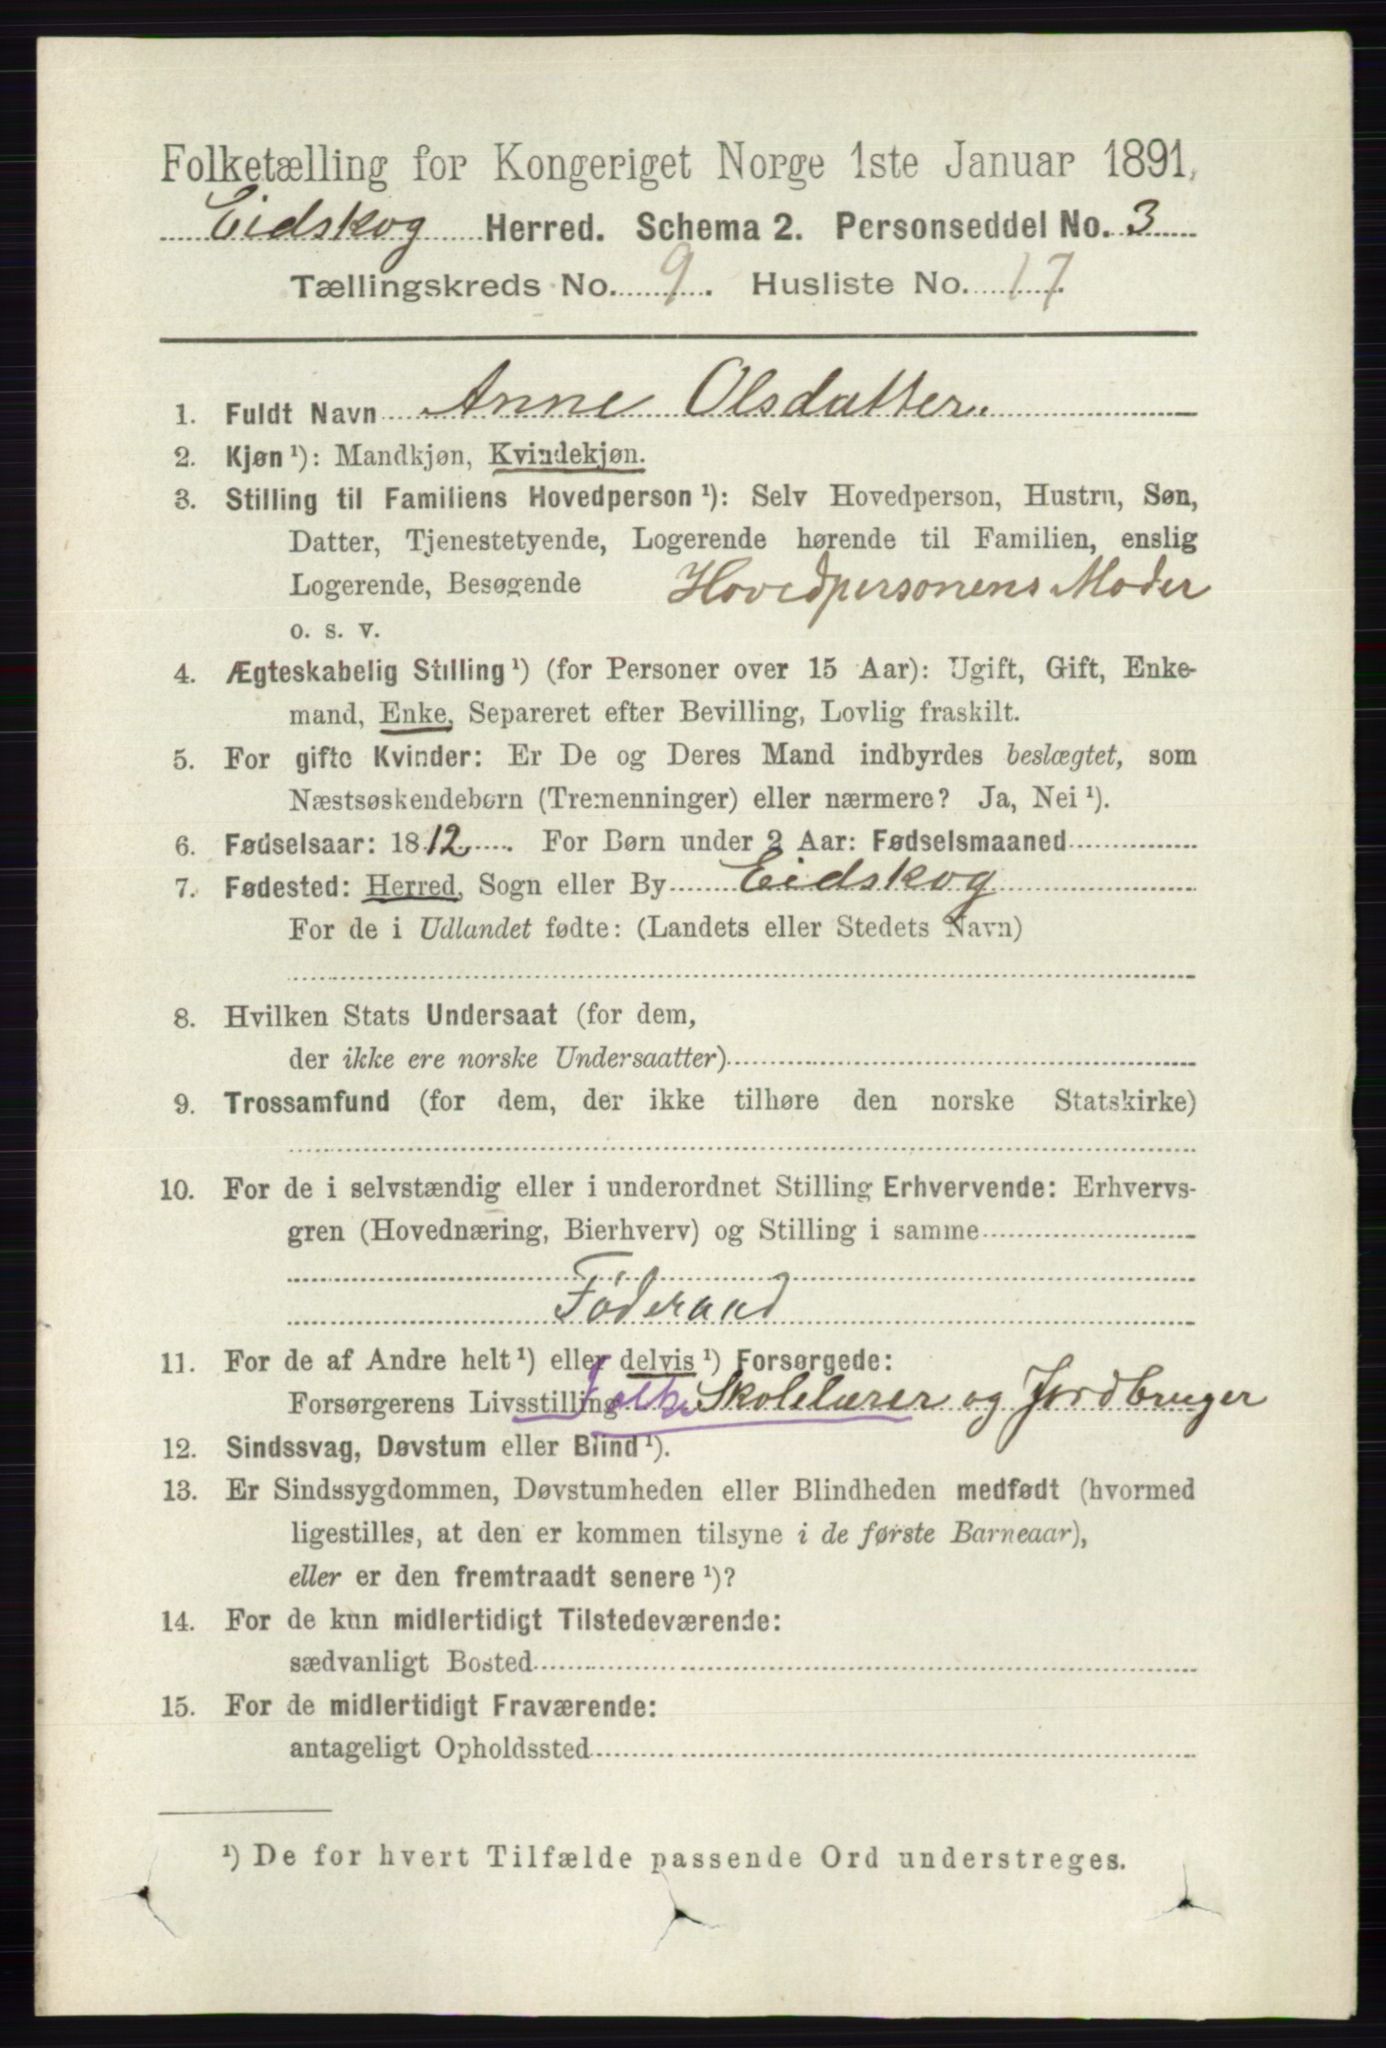 Folketælling for Kongeriget Norge 1ste Januar 1891.
Eidskog Herred. Schema 2. Personseddel No. 3
Tællingskreds No. 9. Husliste No. 17.
1. Fuldt Navn Anne Olsdatter.
2. Kjøn ¹): Mandkjøn, Kvindekjøn.
3. Stilling til Familiens Hovedperson ¹): Selv Hovedperson, Hustru, Søn,
Datter, Tjenestetyende, Logerende hørende til Familien, enslig
Logerende, Besøgende Hovedpersonens Moder
o. s. v.
4. Ægteskabelig Stilling ¹) (for Personer over 15 Aar): Ugift, Gift, Enke-
mand, Enke, Separeret efter Bevilling, Lovlig fraskilt.
5. For gifte Kvinder: Er De og Deres Mand indbyrdes beslægtet, som
Næstsøskendebørn (Tremenninger) eller nærmere? Ja, Nei ¹).
6. Fødselsaar: 1812. For Børn under 2 Aar: Fødselsmaaned
7. Fødested: Herred, Sogn eller By Eidskog
For de i Udlandet fødte: (Landets eller Stedets Navn)
8. Hvilken Stats Undersaat (for dem,
der ikke ere norske Undersaatter)
9. Trossamfund (for dem, der ikke tilhøre den norske Statskirke)
10. For de i selvstændig eller i underordnet Stilling Erhvervende: Erhvervs-
gren (Hovednæring, Bierhverv) og Stilling i samme
Föderaad
11. For de af Andre helt ¹) eller delvis ¹) Forsørgede:
Forsørgerens Livsstilling Folke Skolelærer og Jordbruger
12. Sindssvag, Døvstum eller Blind ¹).
13. Er Sindssygdommen, Døvstumheden eller Blindheden medfødt (hvormed
ligestilles, at den er kommen tilsyne i de første Barneaar),
eller er den fremtraadt senere ¹)?
14. For de kun midlertidigt Tilstedeværende:
sædvanligt Bosted
15. For de midlertidigt Fraværende:
antageligt Opholdssted
¹) De for hvert Tilfælde passende Ord understreges.